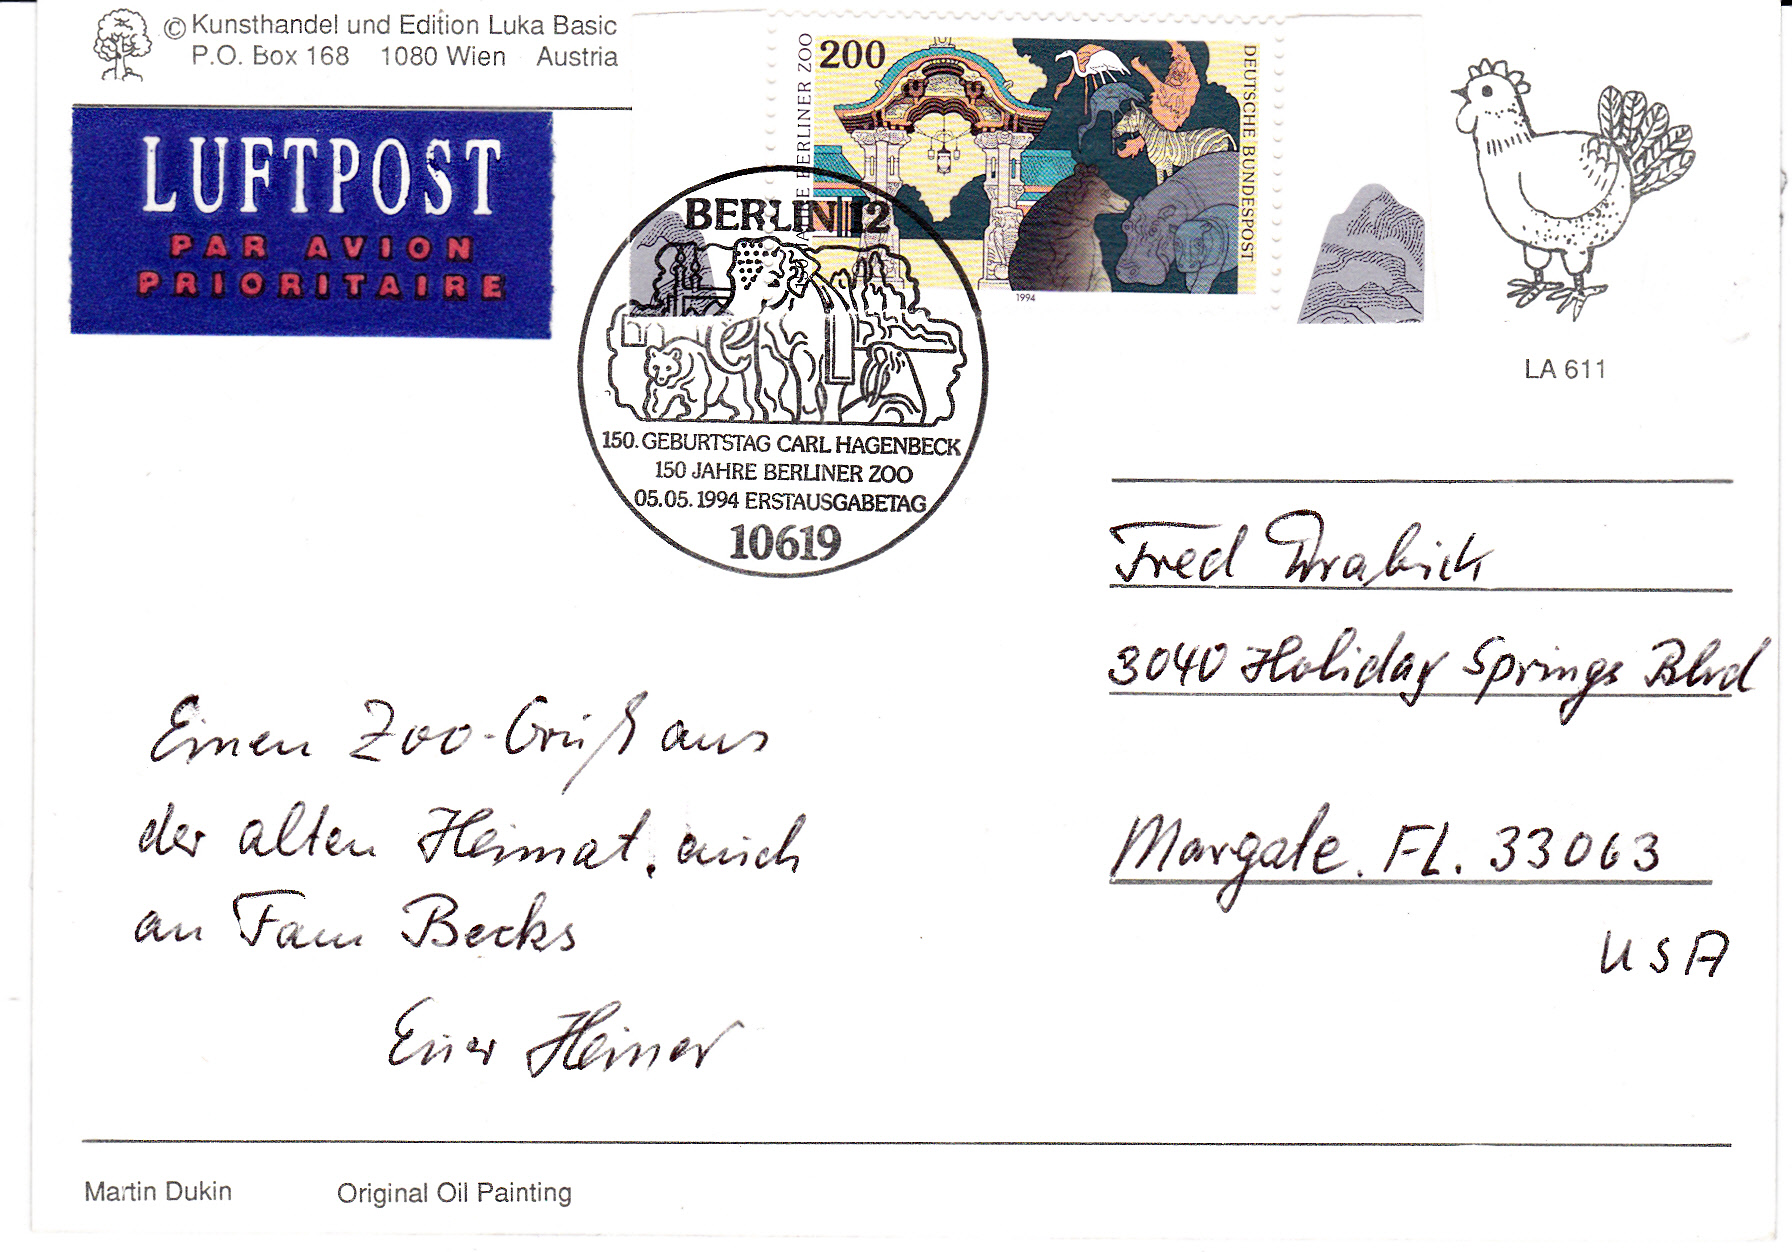 © Kunsthandel und Edition Luka Basic
P.O. Box 168 1080 Wien Austria
LUFTPOST
PAR AVION
PRIORITAIRE
200
BERLINER ZOO
DEUTSCHE BUNDESPOST
1994
BERLIN 12
150. GEBURTSTAG CARL HAGENBECK
150 JAHRE BERLINER ZOO
05.05.1994 ERSTAUSGABETAG
10619
LA 611
Fred Drabick
3040 Holiday Springs Blvd
Margate. FL. 33063
USA
Einen Zoo-Gruß aus
der alten Heimat, auch
an Fam Becks
Euer Heiner
Martin Dukin Original Oil Painting